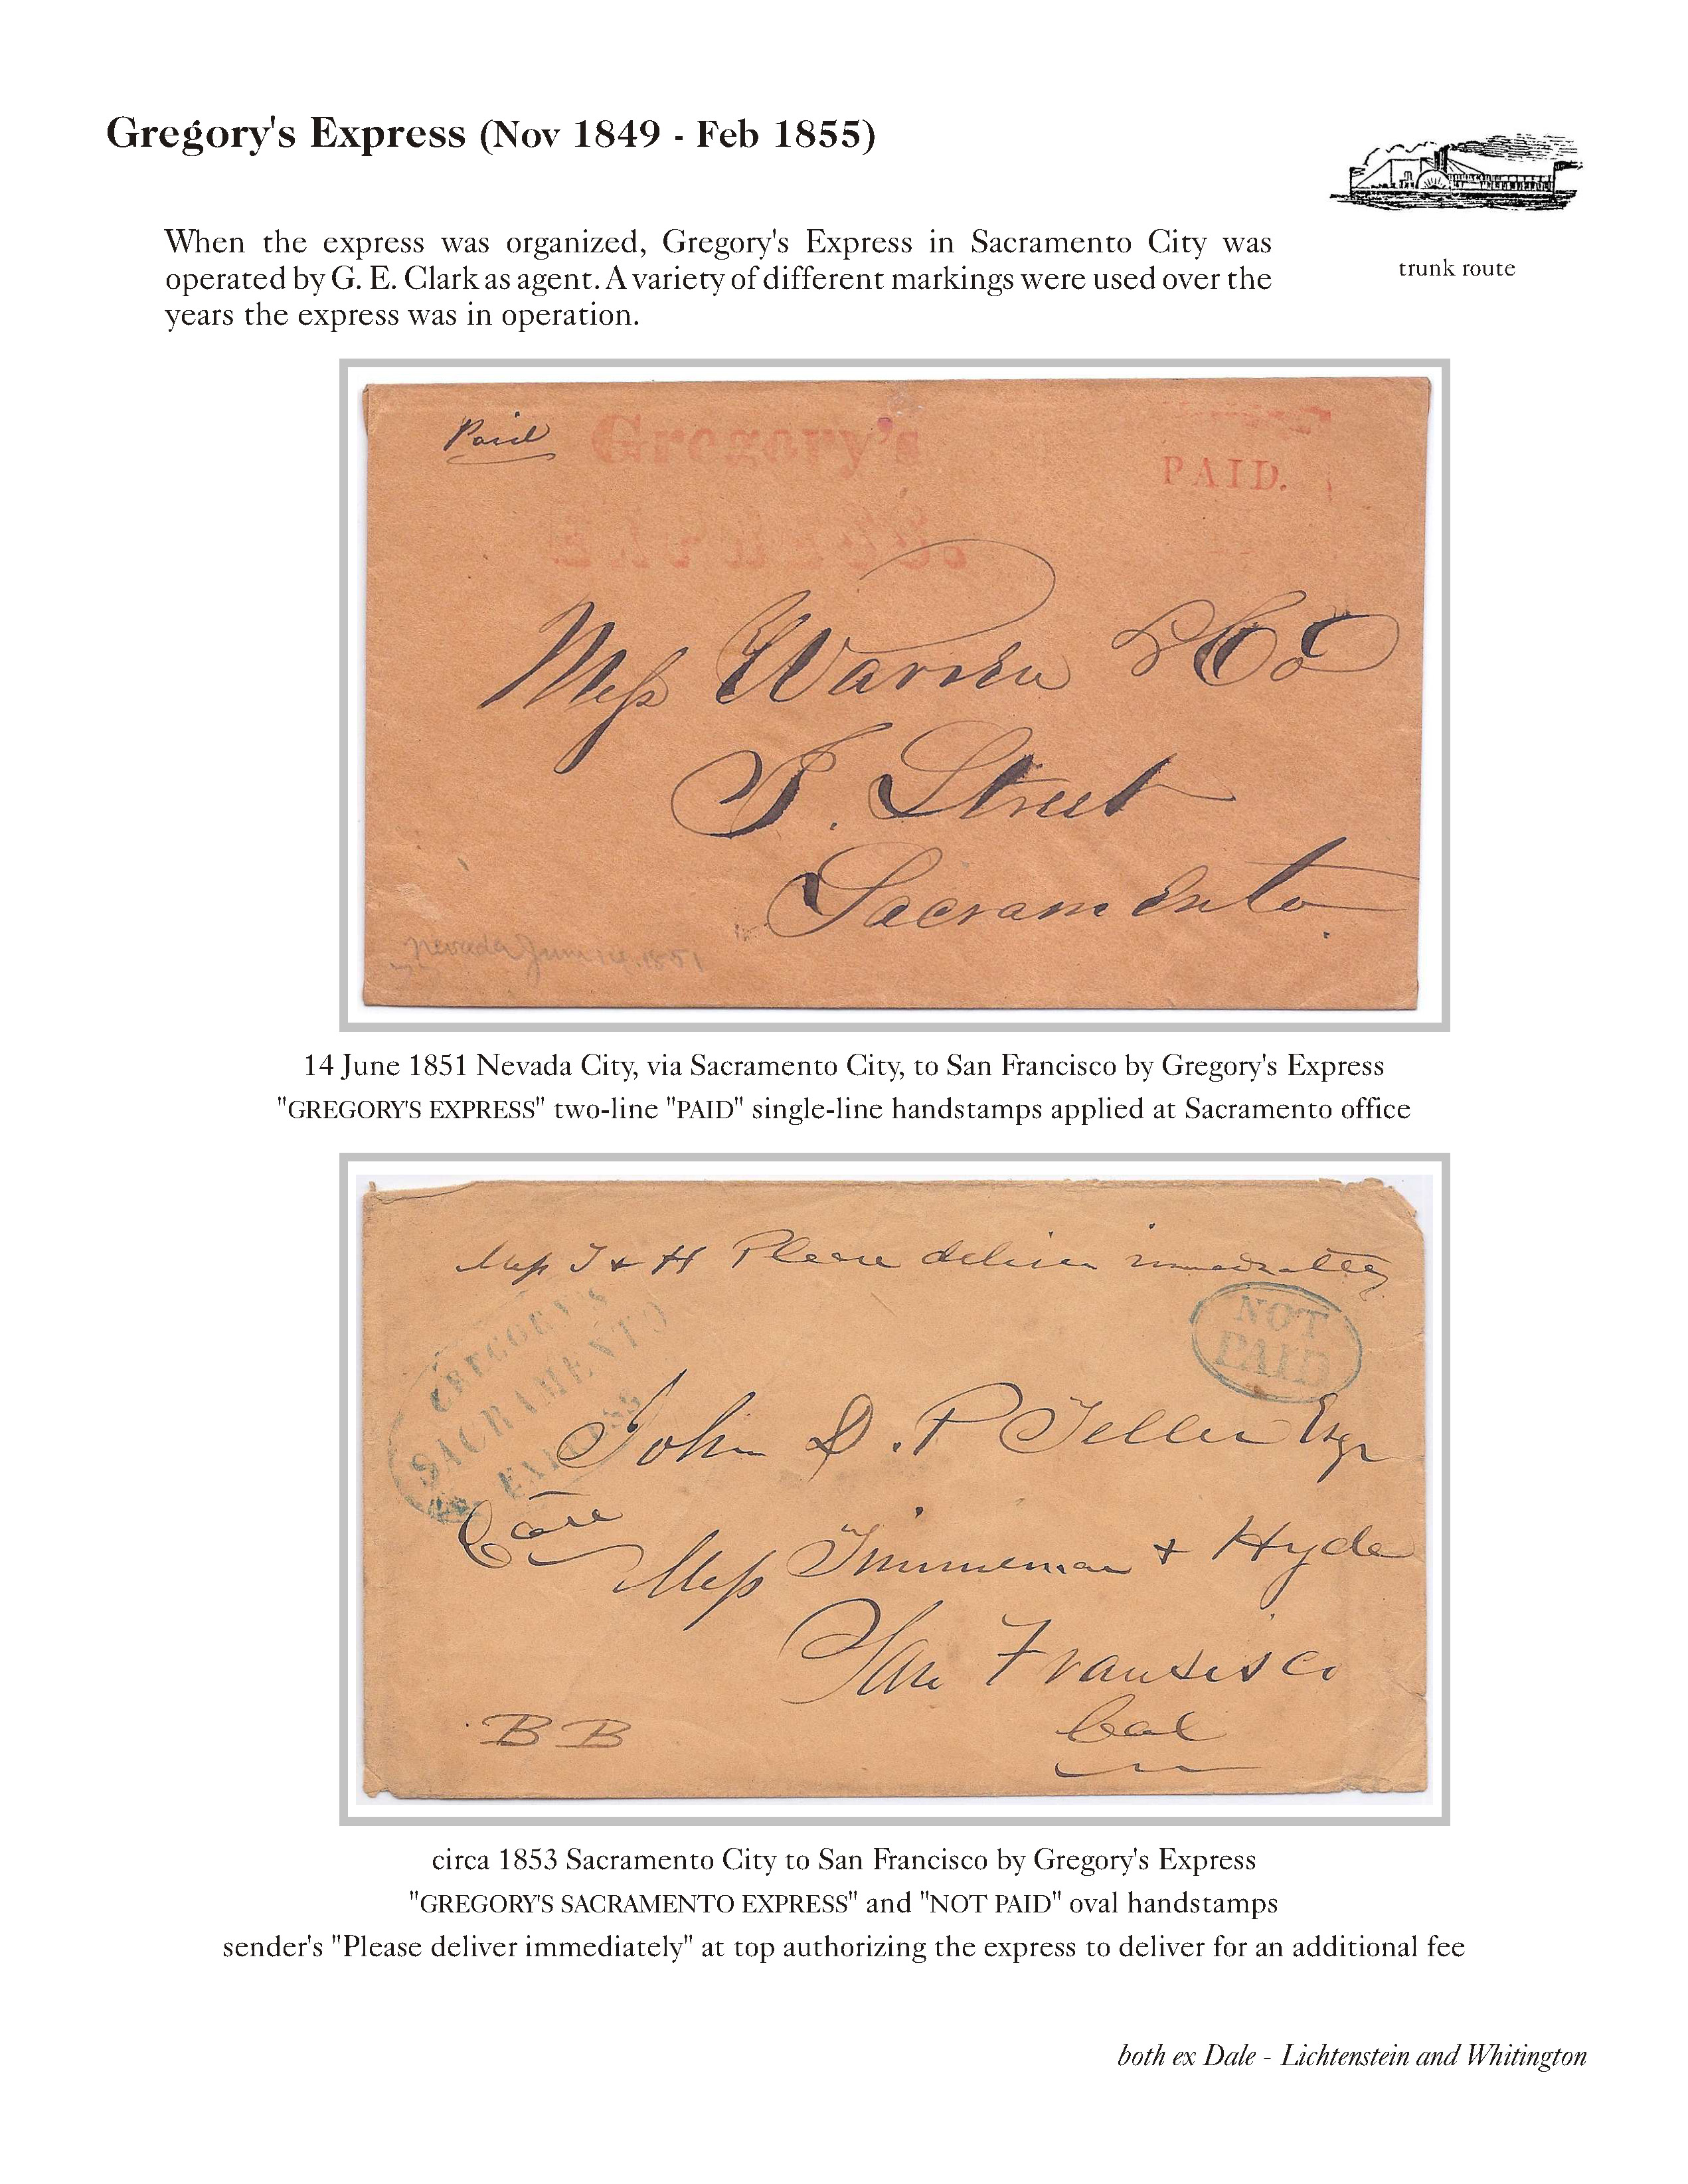 Gregory's Express (Nov 1849 - Feb 1855)
When the express was organized, Gregory's Express in Sacramento City was
operated by G. E. Clark as agent. A variety of different markings were used over the
years the express was in operation.
trunk route
Paid
Gregory's
PAID.
Express.
Mess Warren & Co
J. Street
Sacramento.
Nevada June 14. 1851
14 June 1851 Nevada City, via Sacramento City, to San Francisco by Gregory's Express
"GREGORY'S EXPRESS" two-line "PAID" single-line handstamps applied at Sacramento office
Mess T & H Please deliver immediately
GREGORY'S
SACRAMENTO
EXPRESS
NOT
PAID
John D. P Teller Esqr
Care
Mess Timmeman + Hyde
San Fransisco
Cal
BB
circa 1853 Sacramento City to San Francisco by Gregory's Express
"GREGORY'S SACRAMENTO EXPRESS" and "NOT PAID" oval handstamps
sender's "Please deliver immediately" at top authorizing the express to deliver for an additional fee
both ex Dale - Lichtenstein and Whitington